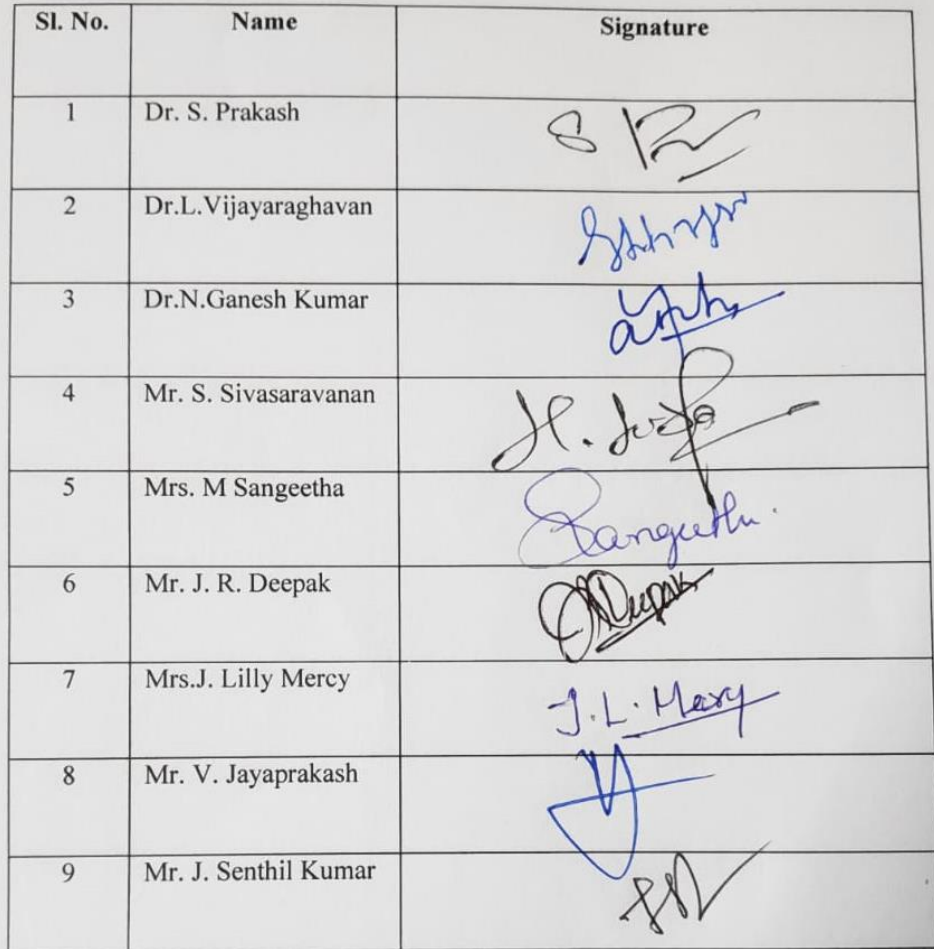 Sl. No. Name Signature
1 Dr. S. Prakash
2 Dr.L.Vijayaraghavan
3 Dr.N.Ganesh Kumar
4 Mr. S. Sivasaravanan
5 Mrs. M Sangeetha Sangeetha.
6 Mr. J. R. Deepak JRDeepak
7 Mrs.J. Lilly Mercy J.L. Mercy
8 Mr. V. Jayaprakash
9 Mr. J. Senthil Kumar